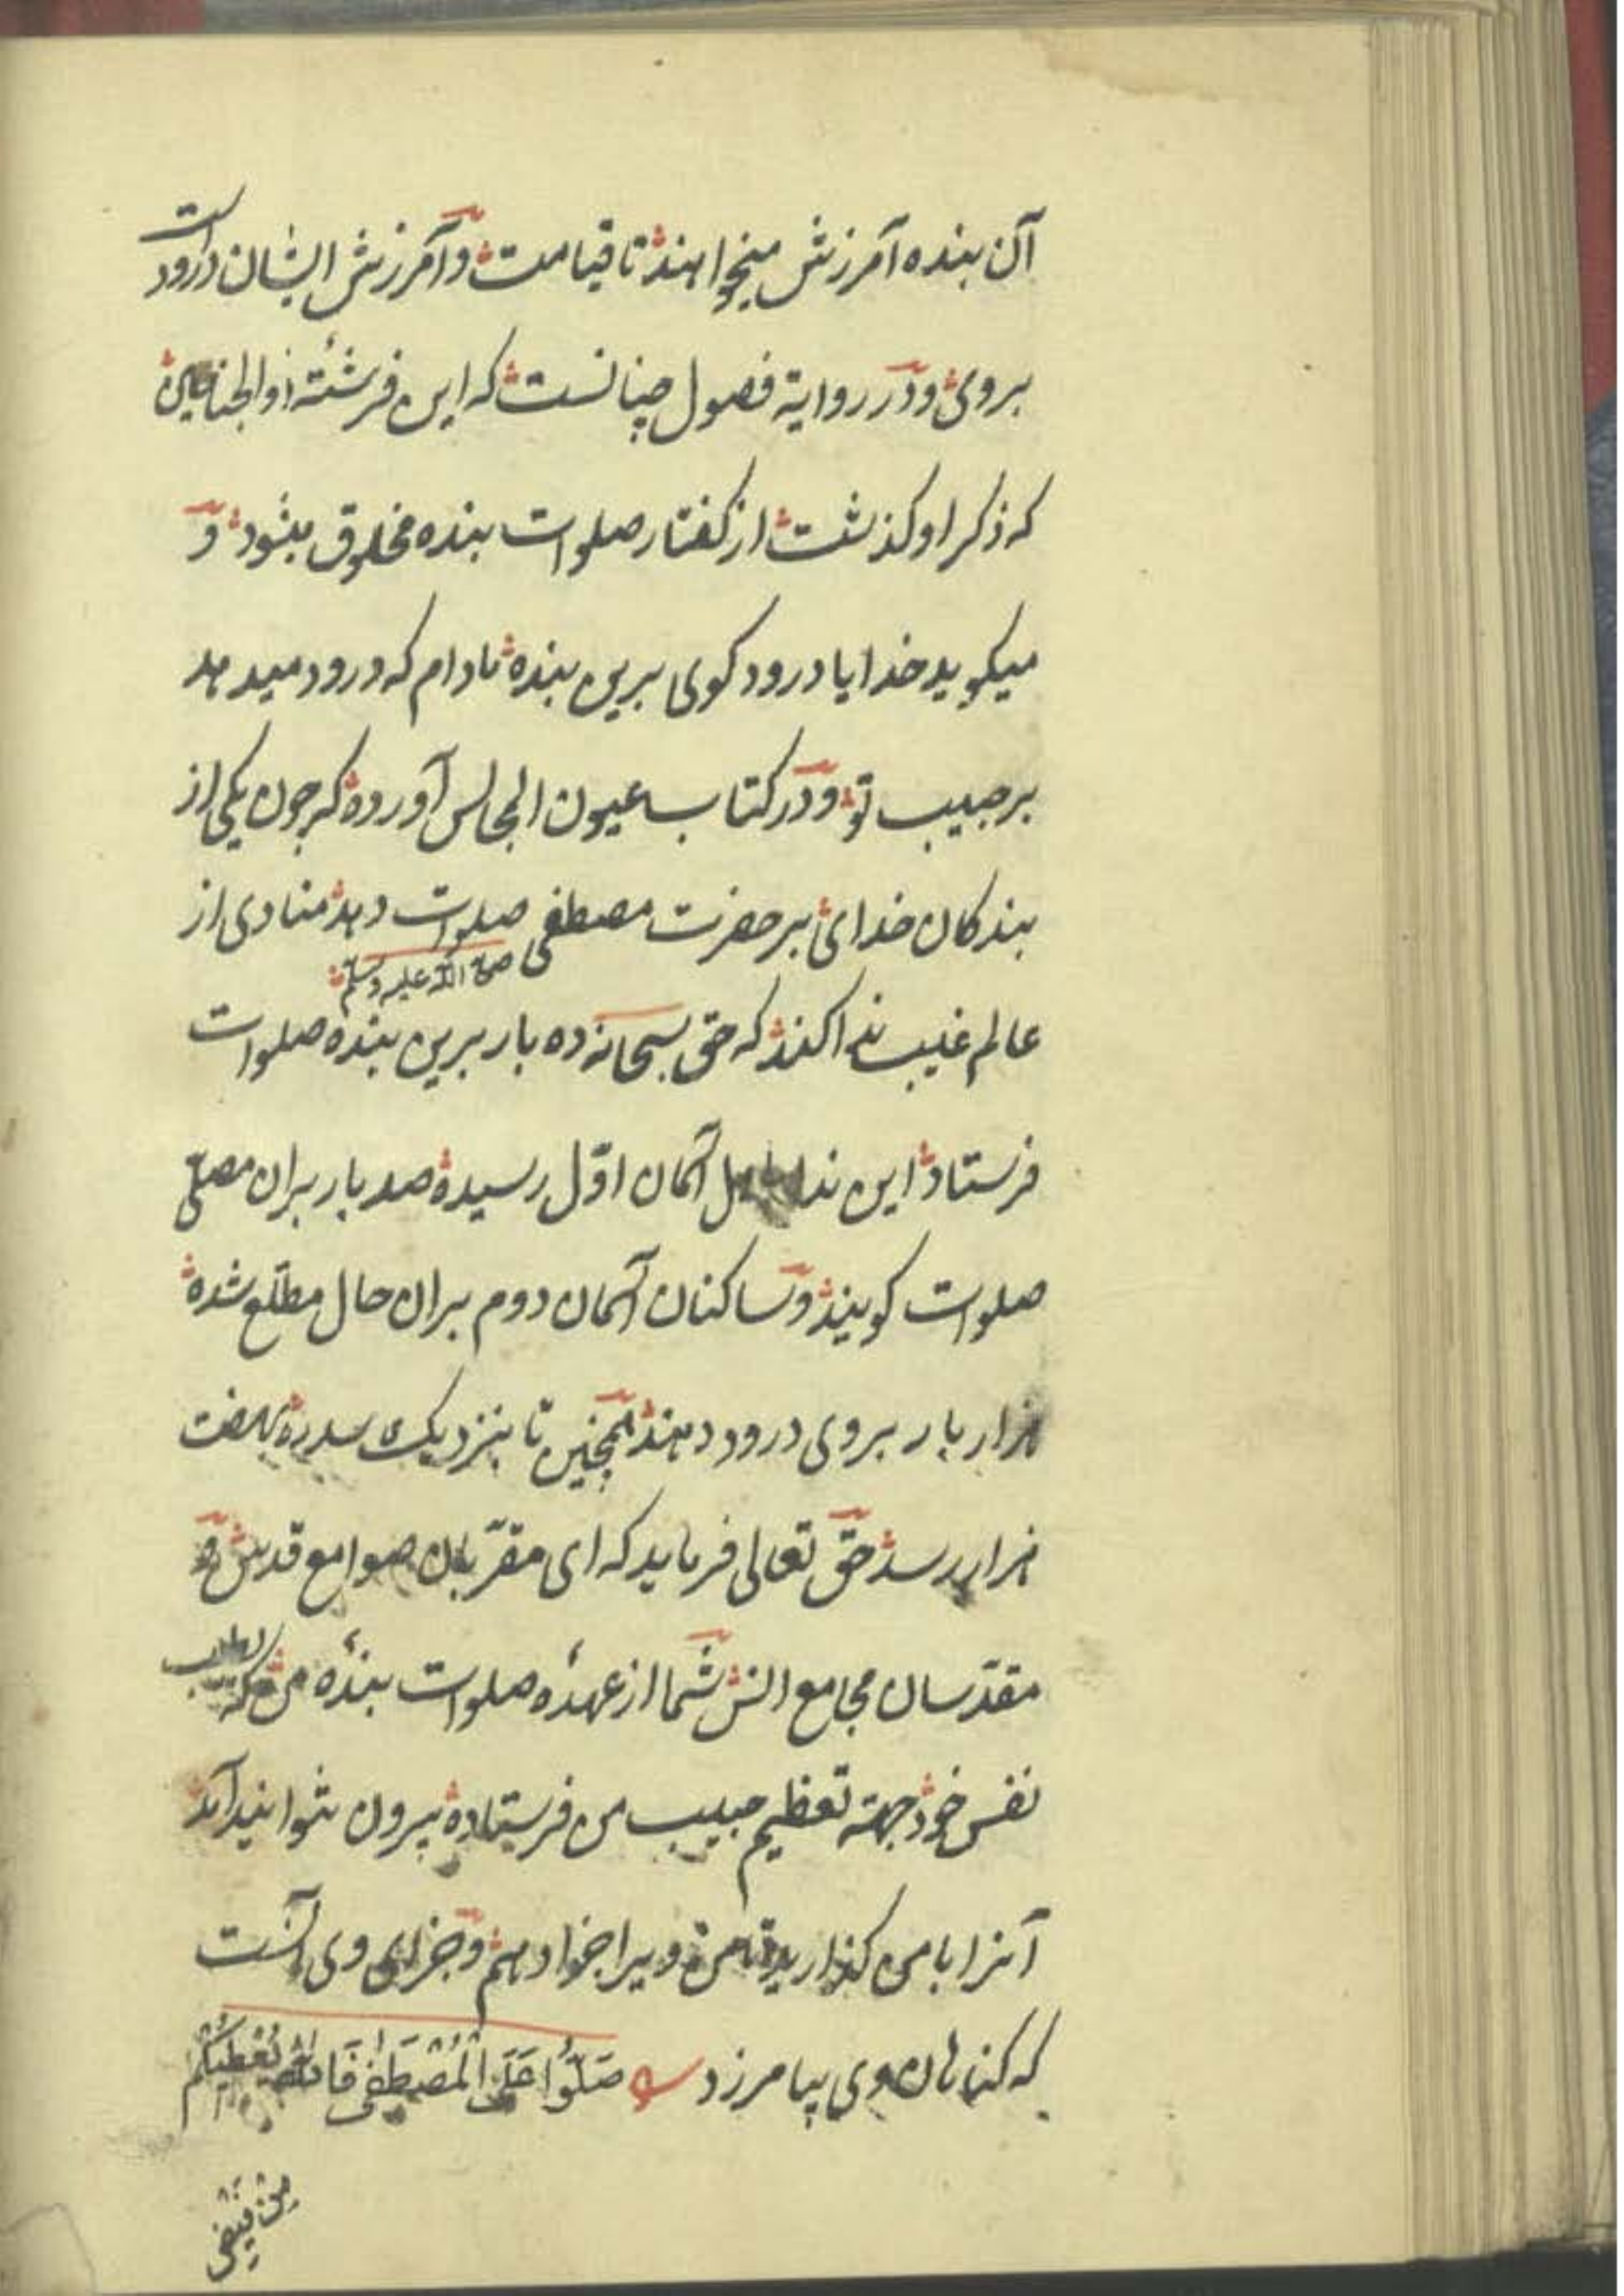 آن بنده آمرزش میخواهند تا قیامت و آمرزش ایشان دروداست
بروی و در روایة فصول چنانست که این فرشتهٔ ذوالجناحین
که ذکر او کذشت از کفتار صلوات بنده مخلوق میشود و
میکوید خدایا درود کوی برین بنده مادام که درود میدهد
بر حبیب تو و در کتاب عیون المجالس آورده که چون یکی از
بندکان خدای بر حضرت مصطفی صلوات دهد منادی از
صلی الله علیه وسلم
عالم غیب ندا کند که حق سبحانه ده بار برین بنده صلوات
فرستاد این ندا باهل آسمان اول رسیده صد بار بران مصلی
صلوات کویند و ساکنان آسمان دوم بران حال مطلع شده
هزار بار بروی درود دهند همچنین تا بنزدیک سدره بهفت
هزار رسد حق تعالی فرماید که ای مقربان صوامع قدس و
مقدسان مجامع انس شما از عهدهٔ صلوات بندهٔ من که
نفس خود جهة تعظیم حبیب من فرستاده بیرون نتوانید آمد
آنرا با من کذارید تا من ویرا جزا دهم و جزای وی آنست
که کناهان وی بیامرزد صَلُّوا عَلَی الْمُصْطَفٰی فَاللّٰهُ یُعْطِیکُمْ
مِنْ فَیْضِ